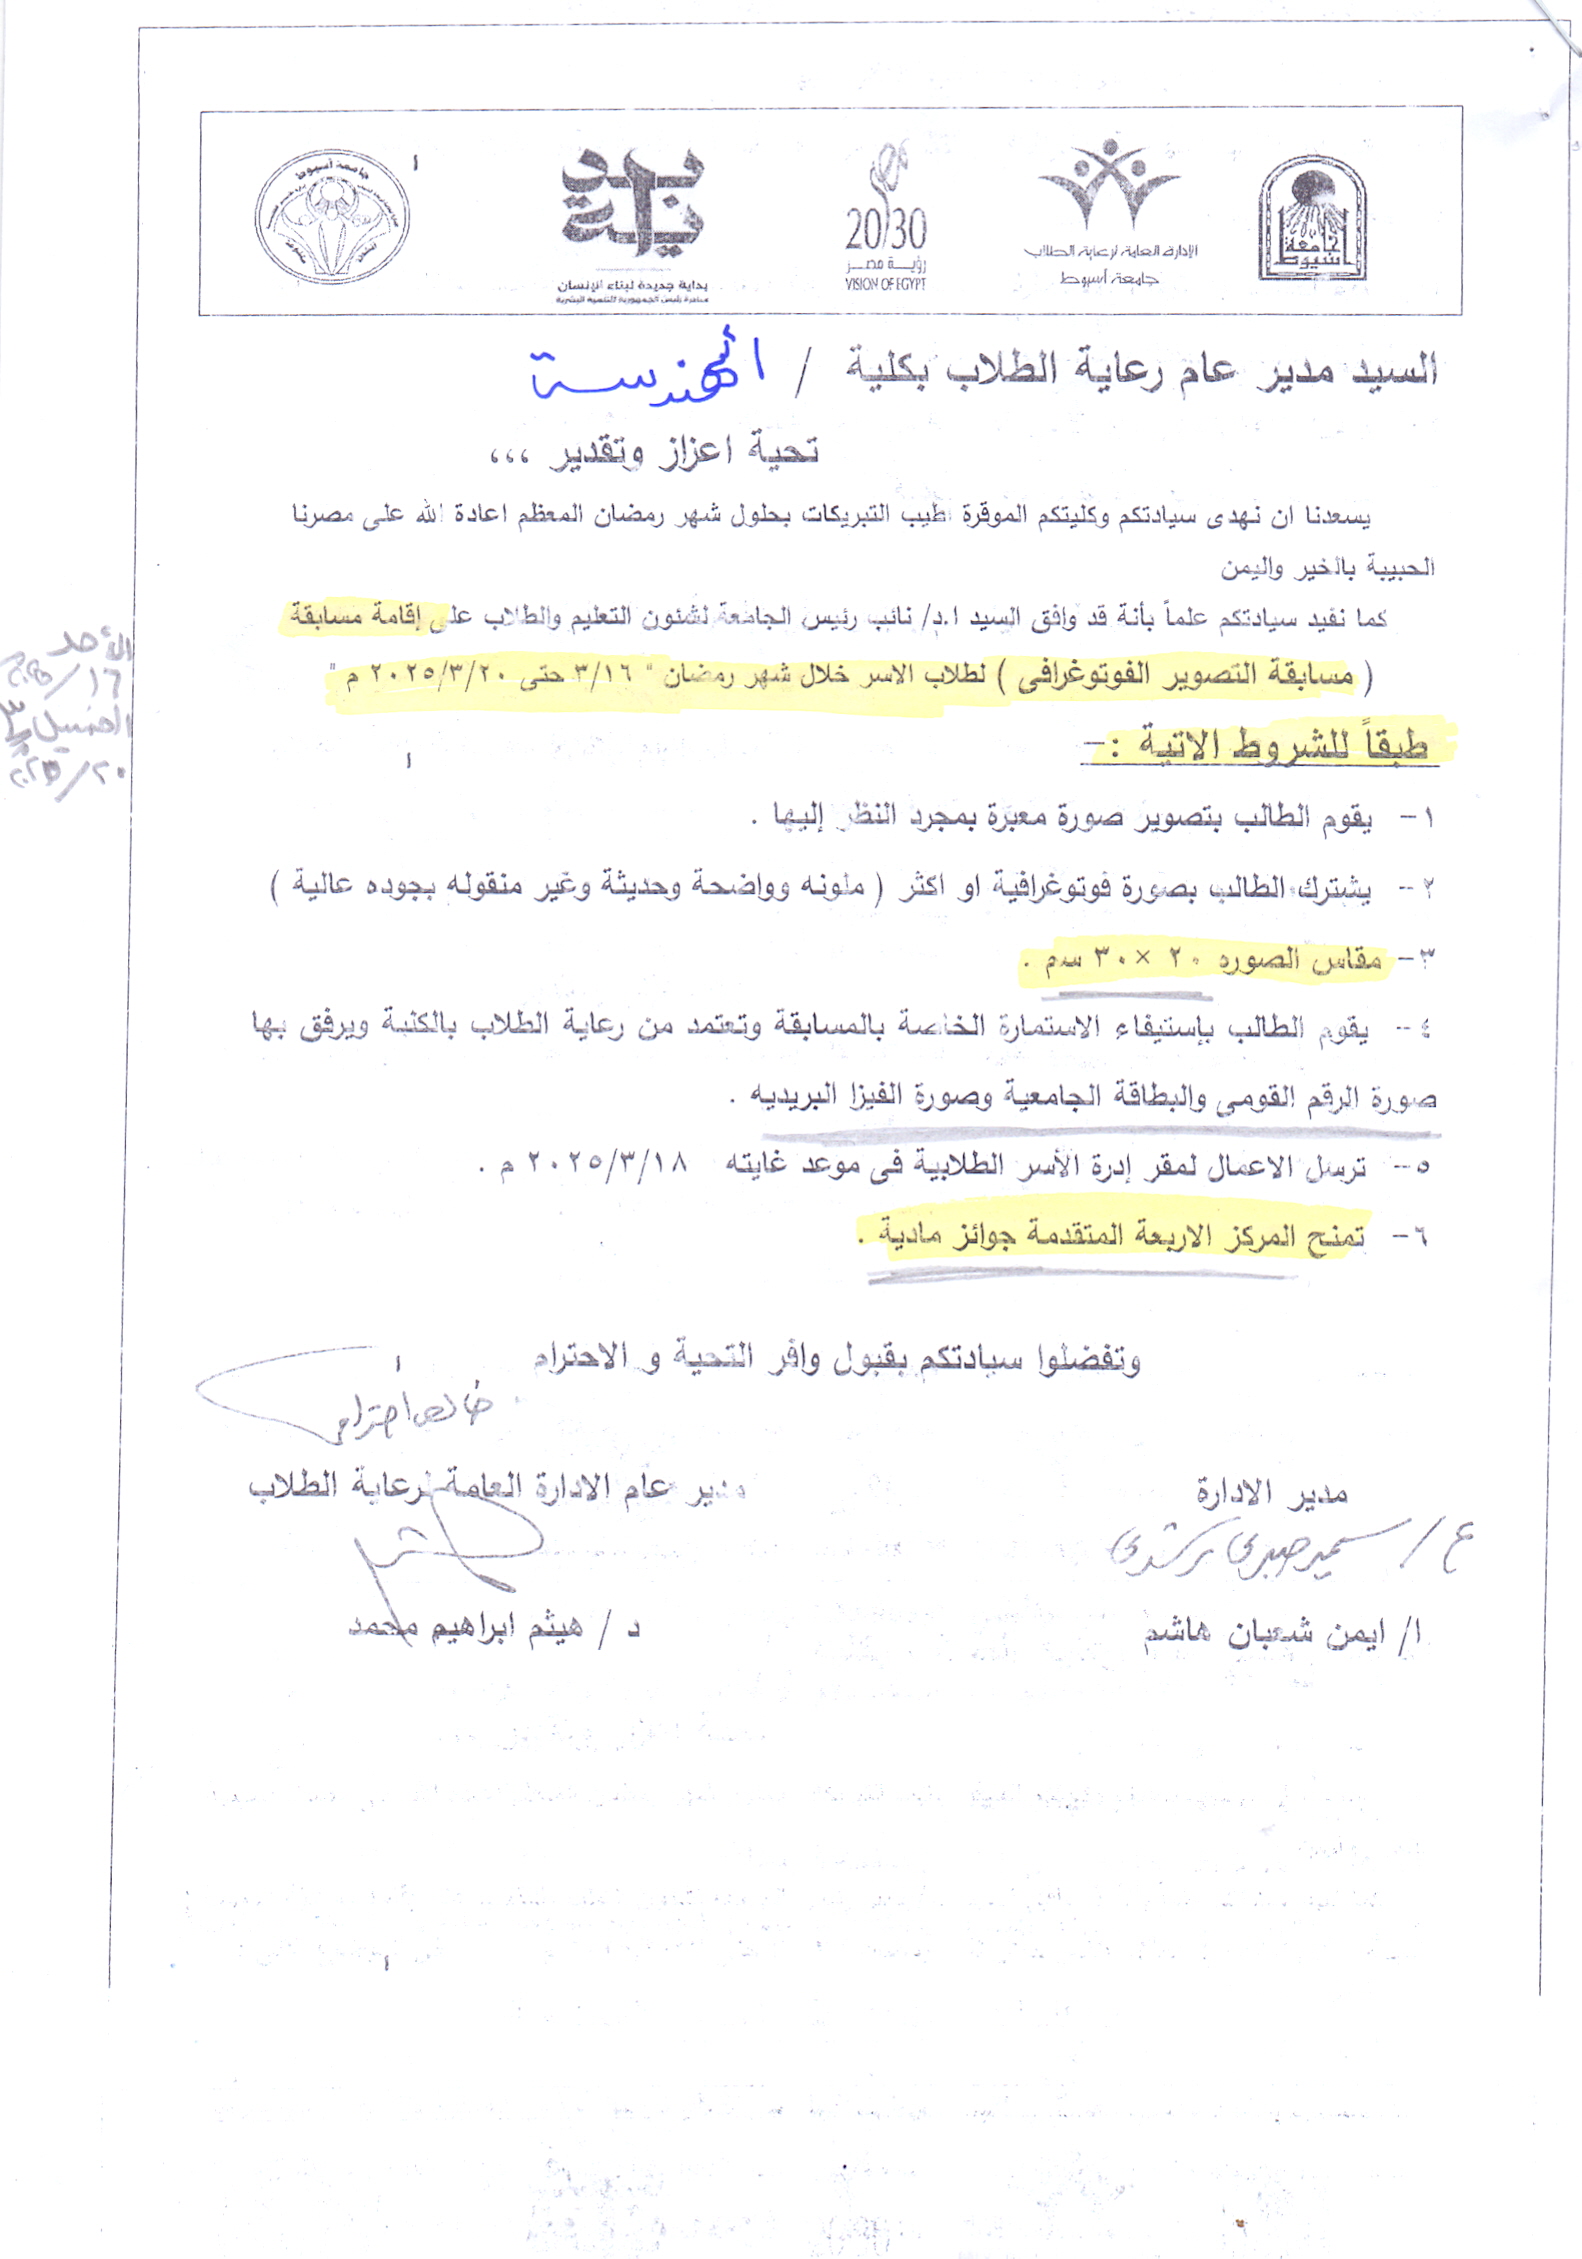 جامعة أسيوط
الإدارة العامة لرعاية الطلاب
جامعة أسيوط
2030
رؤية مصر
VISION OF EGYPT
بداية
بداية جديدة لبناء الإنسان
مبادرة رئيس الجمهورية للتنمية البشرية
جامعة أسيوط
السيد مدير عام رعاية الطلاب بكلية / الهندسة
تحية اعزاز وتقدير ،،،
يسعدنا ان نهدى سيادتكم وكليتكم الموقرة اطيب التبريكات بحلول شهر رمضان المعظم اعادة الله على مصرنا
الحبيبة بالخير واليمن
كما نفيد سيادتكم علماً بأنة قد وافق السيد ا.د/ نائب رئيس الجامعة لشئون التعليم والطلاب على إقامة مسابقة
( مسابقة التصوير الفوتوغرافى ) لطلاب الاسر خلال شهر رمضان " ٣/١٦ حتى ٢٠٢٥/٣/٢٠ م "
الأحد
١٦/
٢٠/
طبقاً للشروط الاتية :-
١- يقوم الطالب بتصوير صورة معبرة بمجرد النظر إليها .
٢- يشترك الطالب بصورة فوتوغرافية او اكثر ( ملونه وواضحة وحديثة وغير منقوله بجوده عالية )
٣- مقاس الصوره ٢٠ × ٣٠ سم .
٤- يقوم الطالب بإستيفاء الاستمارة الخاصة بالمسابقة وتعتمد من رعاية الطلاب بالكلية ويرفق بها
صورة الرقم القومى والبطاقة الجامعية وصورة الفيزا البريديه .
٥- ترسل الاعمال لمقر إدرة الأسر الطلابية فى موعد غايته ٢٠٢٥/٣/١٨ م .
٦- تمنح المركز الاربعة المتقدمة جوائز مادية .
وتفضلوا سيادتكم بقبول وافر التحية و الاحترام
مدير الادارة
مدير عام الادارة العامة لرعاية الطلاب
ا/ ايمن شعبان هاشم
د / هيثم ابراهيم محمد